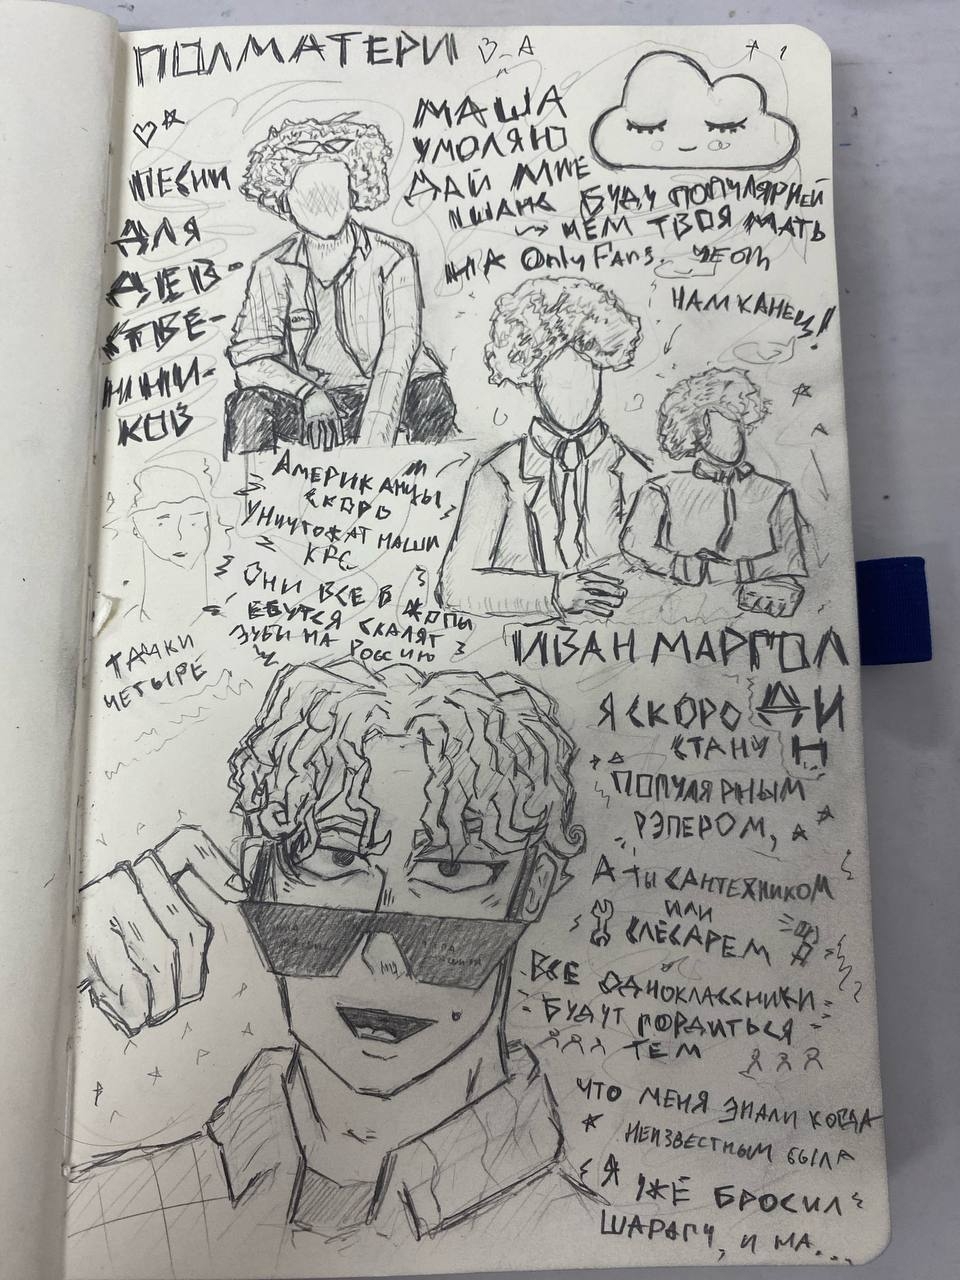 ПОЛМАТЕРИ
ПЕСНИ
ДЛЯ
ДЕВ-
СТВЕ-
ННИ-
КОВ
МАША
УМОЛЯЮ
ДАЙ МНЕ
ШАНС БУДУ ПОПУЛЯРНЕЙ
ЧЕМ ТВОЯ МАТЬ
НА OnlyFans.
НАМ КАНЕЦ!
АМЕРИКАНЦЫ
СКОРО
УНИЧТОЖАТ НАШИ
КРС
ОНИ ВСЕ В ЖОПЫ
ЕБУТСЯ СКАЛЯТ
ЗУБИ НА РОССИЮ
ТАЧКИ
ЧЕТЫРЕ
ИВАН МАРГОЛ
ДИ
Н
Я СКОРО
СТАНУ
ПОПУЛЯРНЫМ
РЭПЕРОМ,
А ТЫ САНТЕХНИКОМ
ИЛИ
СЛЕСАРЕМ
ВСЕ ОДНОКЛАССНИКИ
БУДУТ ГОРДИТЬСЯ
ТЕМ
ЧТО МЕНЯ ЗНАЛИ КОГДА
НЕИЗВЕСТНЫМ БЫЛА
Я УЖЕ БРОСИЛ
ШАРАГУ, И НА...